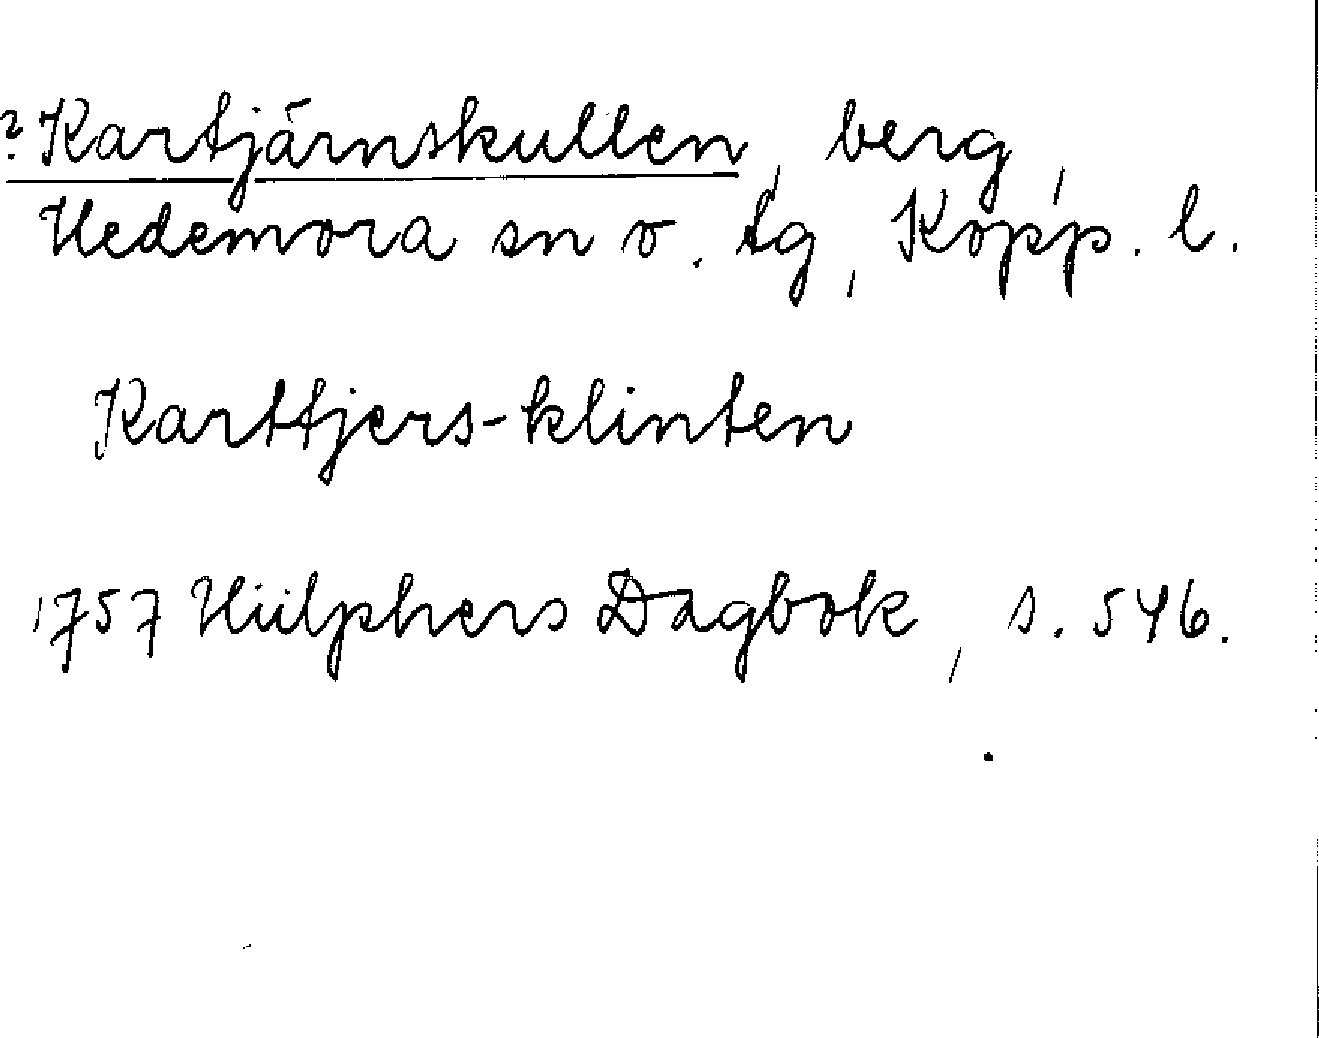 ? Kartjärnskullen, berg,
Hedemora sn o. tg, Kopp. l.
Karttjers-klinten
1757 Hülphers Dagbok, s. 546.